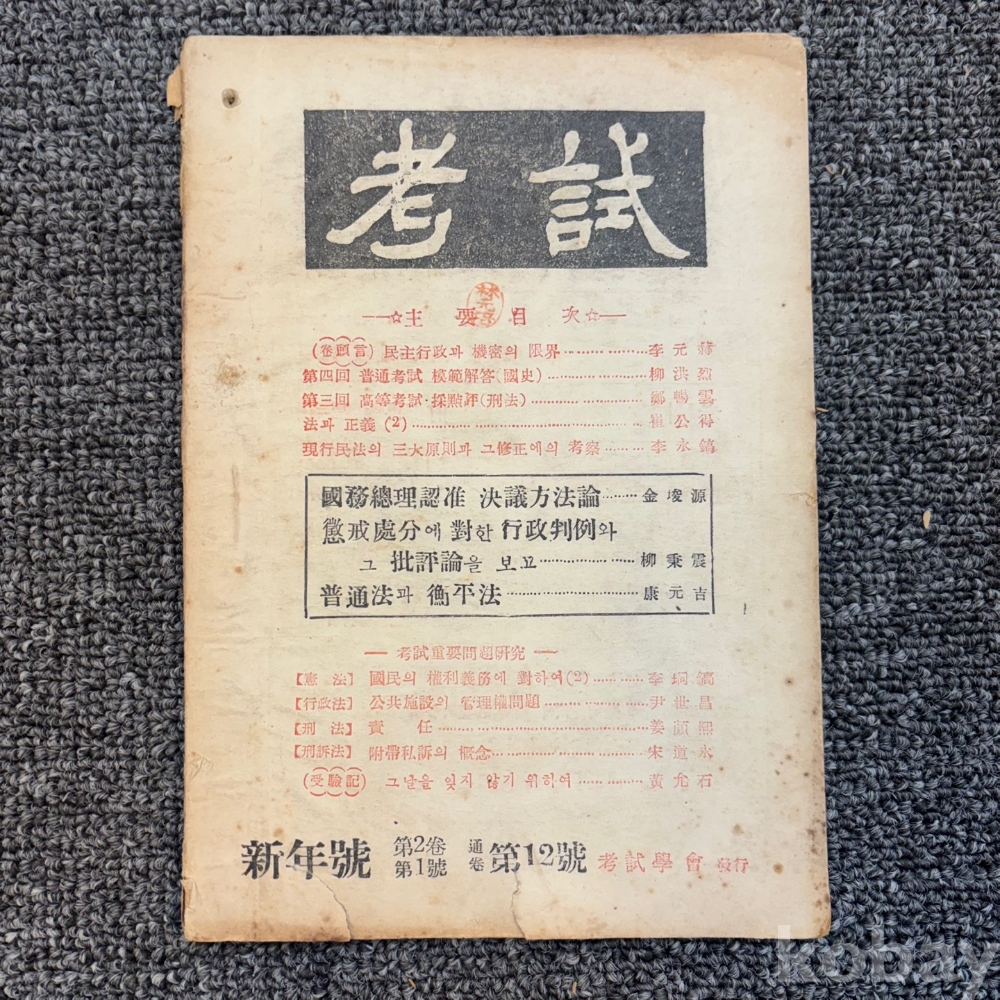 考試
林元
主要目次
(卷頭言) 民主行政과 機密의 限界 李元赫
第四回 普通考試 模範解答(國史) 柳洪烈
第三回 高等考試·採點評(刑法) 鄭暢雲
法과 正義 (2) 崔公得
現行民法의 三大原則과 그修正에의 考察 李永鎬
國務總理認准 決議方法論 金埈源
懲戒處分에 對한 行政判例와
그 批評論을 보고 柳秉震
普通法과 衡平法 康元吉
考試重要問題硏究
【憲法】 國民의 權利義務에 對하여(2) 李坰鎬
【行政法】 公共施設의 管理權問題 尹世昌
【刑法】 責任 姜顔熙
【刑訴法】 附帶私訴의 槪念 宋道永
(受驗記) 그날을 잊지 않기 위하여 黃允石
新年號 第2卷 第1號 通卷 第12號 考試學會 發行
kobay